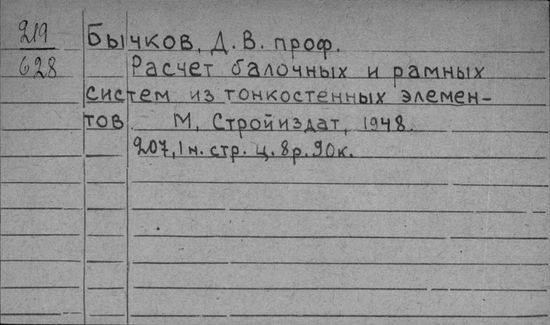 219
628
Бычков, Д. В. проф.
Расчет балочных и рамных
систем из тонкостенных элемен-
тов М, Стройиздат, 1948.
207, 1 н. стр. ц. 8 р. 90 к.